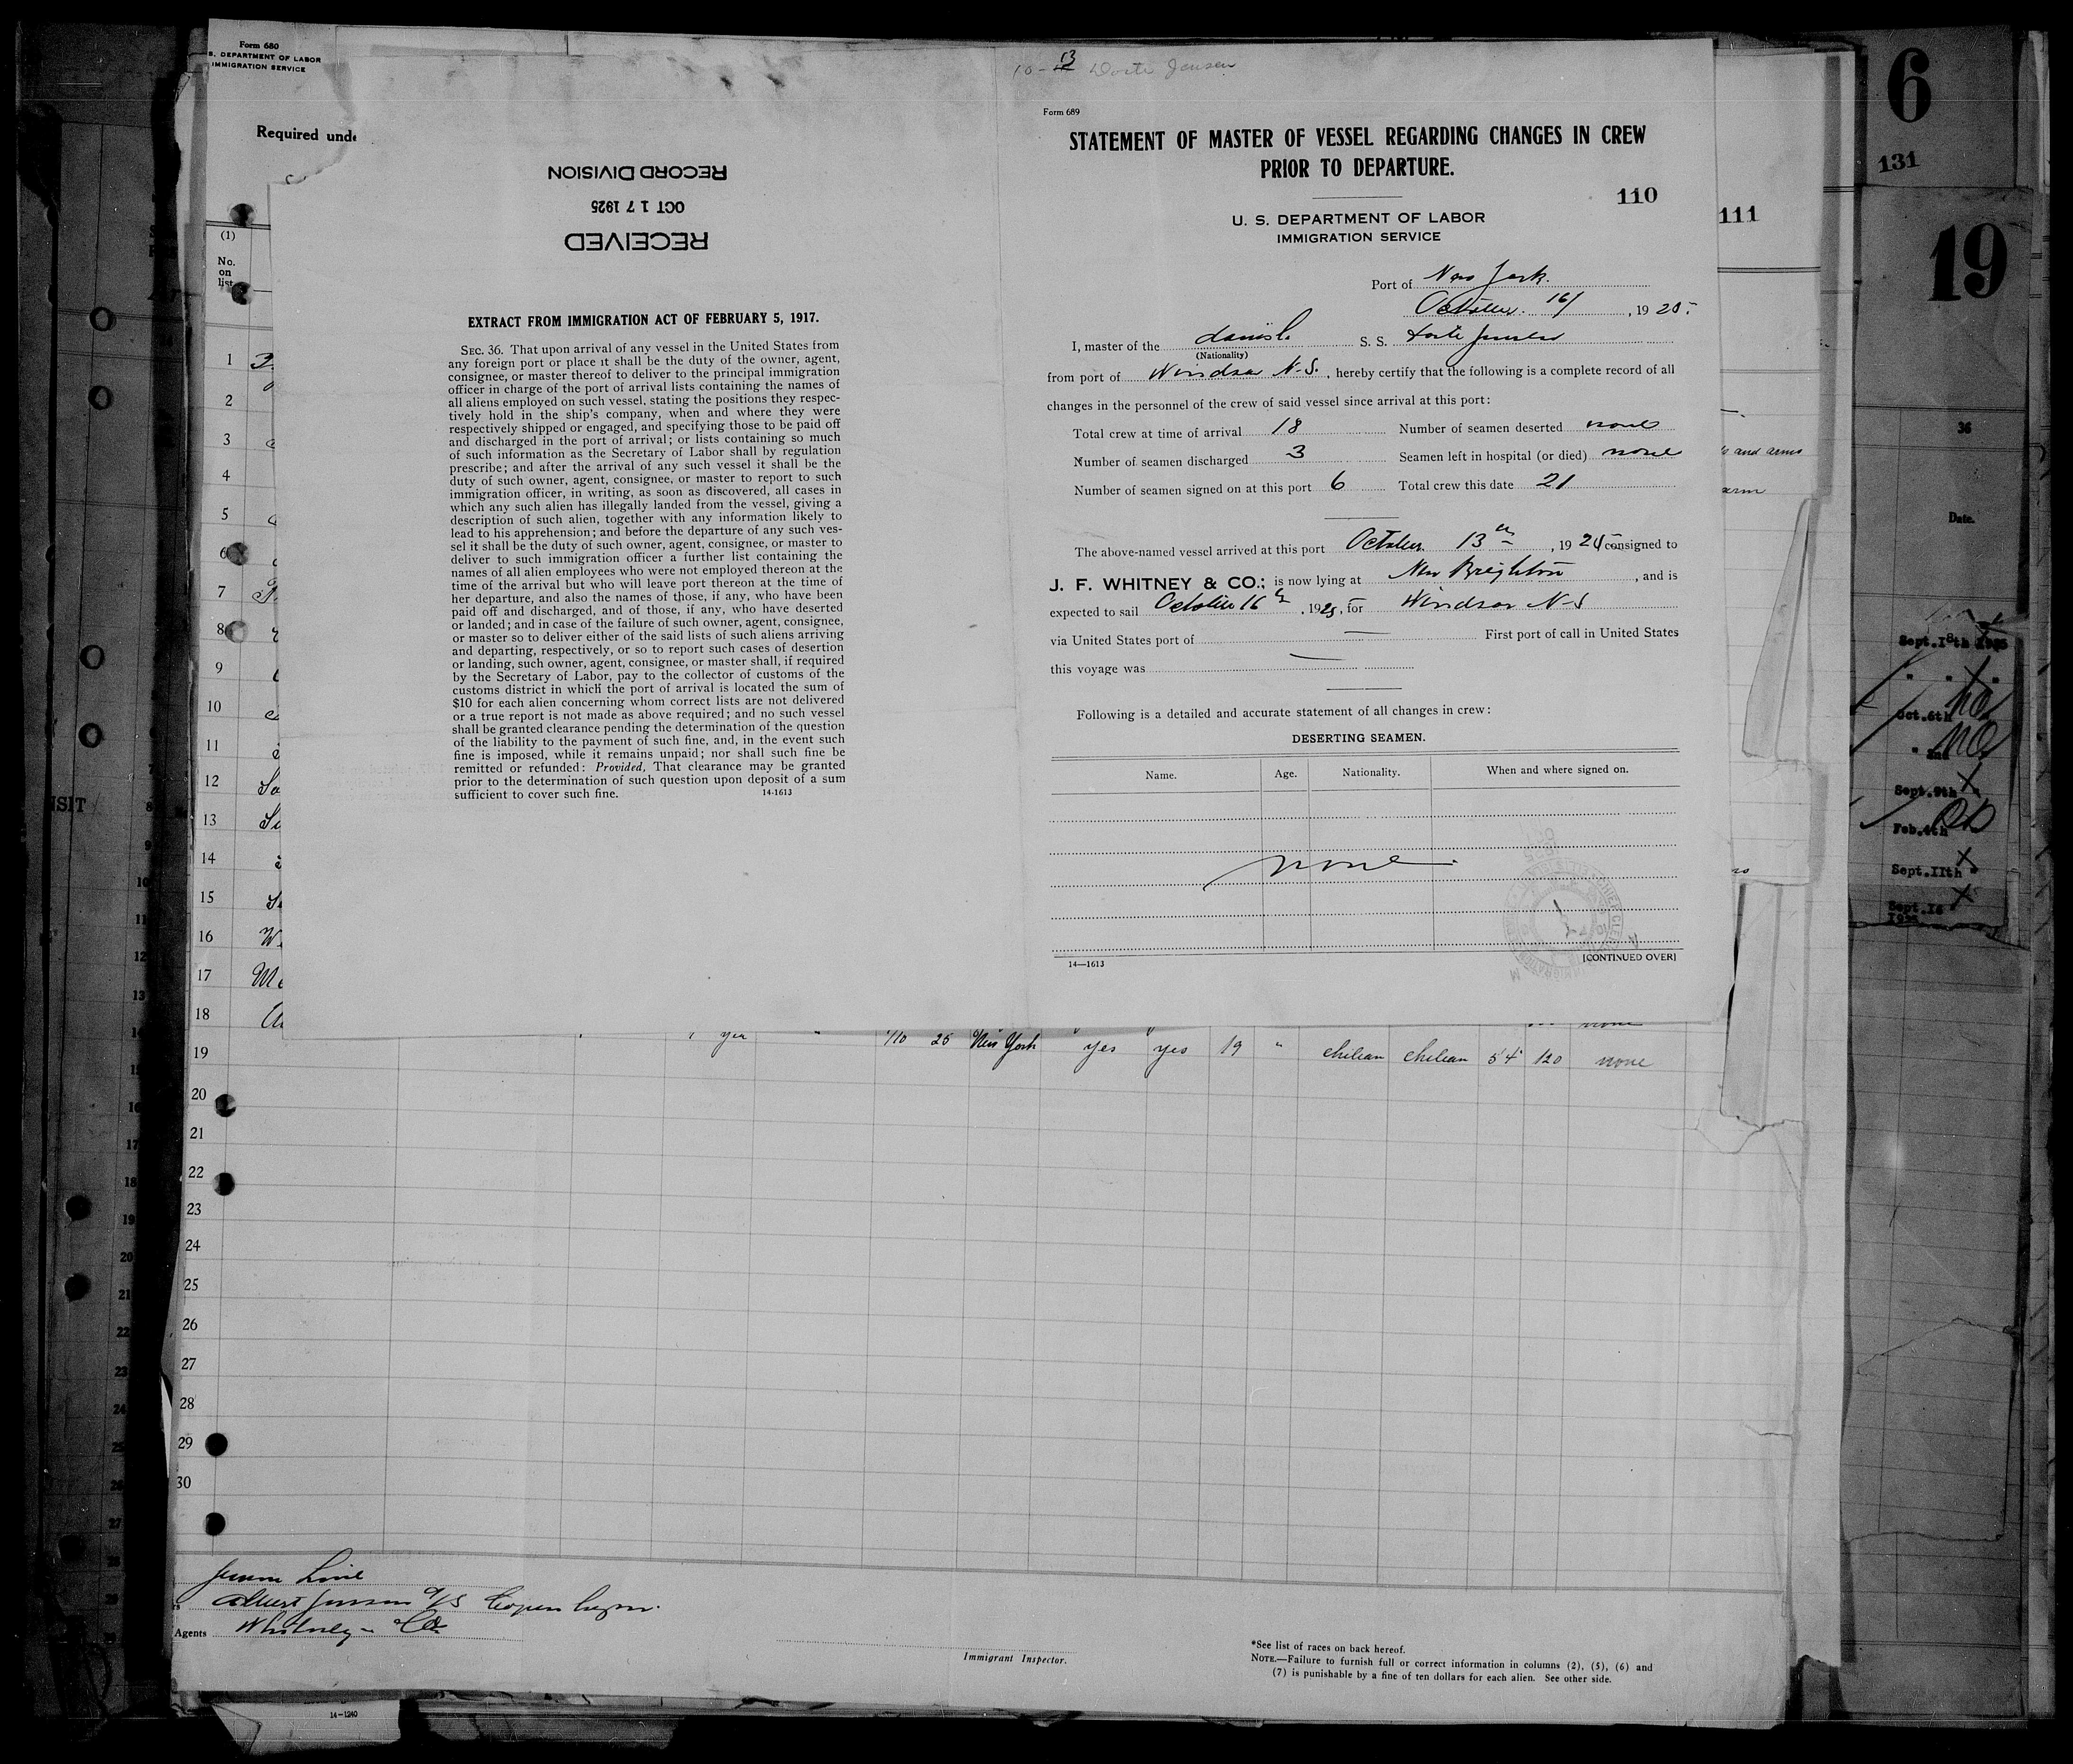 Form 680
S. DEPARTMENT OF LABOR
IMMIGRATION SERVICE
Required unde
(1)
No.
on
list
RECEIVED
OCT 17 1925
RECORD DIVISION
EXTRACT FROM IMMIGRATION ACT OF FEBRUARY 5, 1917.
SEC. 36. That upon arrival of any vessel in the United States from
any foreign port or place it shall be the duty of the owner, agent,
consignee, or master thereof to deliver to the principal immigration
officer in charge of the port of arrival lists containing the names of
all aliens employed on such vessel, stating the positions they respec-
tively hold in the ship's company, when and where they were
respectively shipped or engaged, and specifying those to be paid off
and discharged in the port of arrival; or lists containing so much
of such information as the Secretary of Labor shall by regulation
prescribe; and after the arrival of any such vessel it shall be the
duty of such owner, agent, consignee, or master to report to such
immigration officer, in writing, as soon as discovered, all cases in
which any such alien has illegally landed from the vessel, giving a
description of such alien, together with any information likely to
lead to his apprehension; and before the departure of any such ves-
sel it shall be the duty of such owner, agent, consignee, or master to
deliver to such immigration officer a further list containing the
names of all alien employees who were not employed thereon at the
time of the arrival but who will leave port thereon at the time of
her departure, and also the names of those, if any, who have been
paid off and discharged, and of those, if any, who have deserted
or landed; and in case of the failure of such owner, agent, consignee,
or master so to deliver either of the said lists of such aliens arriving
and departing, respectively, or so to report such cases of desertion
or landing, such owner, agent, consignee, or master shall, if required
by the Secretary of Labor, pay to the collector of customs of the
customs district in which the port of arrival is located the sum of
$10 for each alien concerning whom correct lists are not delivered
or a true report is not made as above required; and no such vessel
shall be granted clearance pending the determination of the question
of the liability to the payment of such fine, and, in the event such
fine is imposed, while it remains unpaid; nor shall such fine be
remitted or refunded: Provided, That clearance may be granted
prior to the determination of such question upon deposit of a sum
sufficient to cover such fine. 14-1613
10-13 Dorte Jensen
Form 689
STATEMENT OF MASTER OF VESSEL REGARDING CHANGES IN CREW
PRIOR TO DEPARTURE.
110
U. S. DEPARTMENT OF LABOR
IMMIGRATION SERVICE
Port of New York.
October 16/, 1925.
I, master of the danish S. S. Dorte Jensen
(Nationality)
from port of Windsor N.S., hereby certify that the following is a complete record of all
changes in the personnel of the crew of said vessel since arrival at this port:
Total crew at time of arrival 18 Number of seamen deserted none
Number of seamen discharged 3 Seamen left in hospital (or died) none
Number of seamen signed on at this port 6 Total crew this date 21
The above-named vessel arrived at this port October 13th, 1925 consigned to
J. F. WHITNEY & CO.; is now lying at New Brighton, and is
expected to sail October 16th, 1925, for Windsor N-S
via United States port of — First port of call in United States
this voyage was —
Following is a detailed and accurate statement of all changes in crew:
DESERTING SEAMEN.
Name. Age. Nationality. When and where signed on.
none
14—1613 [CONTINUED OVER]
111
and arms
arm
6
131
19
36
Date.
Sept.18th
Oct.6th no
2nd no
Sept.9th
Feb.4th
Sept.11th
Sept.16
1
2
3
4
5
6
7
8
9
10
11
12
13
14
15
16
17
18
yes
19 1/10 25 New York yes yes 19 " chilean chilean 5'4" 120 none
20
21
22
23
24
25
26
27
28
29
30
Jensen Line
Albert Jensen A/S Copenhagen.
Agents Whitney & Co
Immigrant Inspector.
*See list of races on back hereof.
NOTE.—Failure to furnish full or correct information in columns (2), (5), (6) and
(7) is punishable by a fine of ten dollars for each alien. See other side.
14-1240